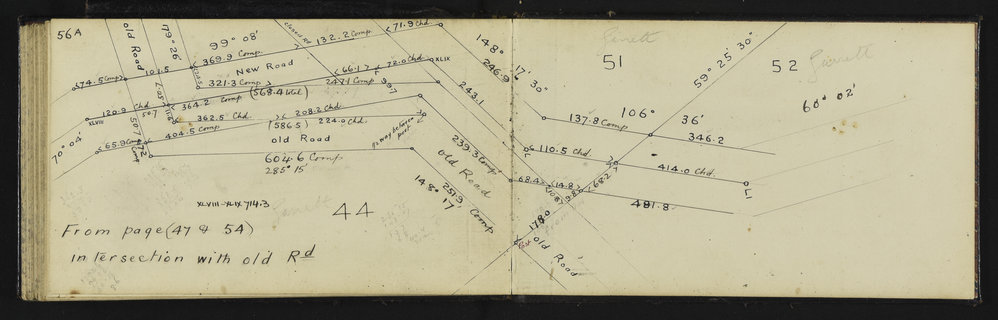 56A
old Road
79° 26'
99° 08'
closed Rd
132.2 Comp
71.9 Chd
369.9 Comp.
New Road
74.5 Comp
10.5
321.3 Comp
66.1
72.0 Chd
XLIX
247.1 Comp
(568.4 total)
997
120.9 Chd
364.2 Comp
XLVIII
50.7
362.5 Chd.
208.2 Chd
(586.5)
224.0 Chd.
404.5 Comp
old Road
65.9 Comp
70° 04'
507
604.6 Comp
285° 15'
148°
17' 30"
246.9
243.1
239.3 Comp
old Road
251.9 Comp
148° 17'
XLVIII-XLIX 714.3
44
From page (47 & 54)
intersection with old Rd
51
59° 25' 30"
52
60° 02'
137.8 Comp
106° 36'
346.2
110.5 Chd.
414.0 Chd.
LI
L
68.4
14.8
68.2
108
9.8
481.8
178.0
old Road